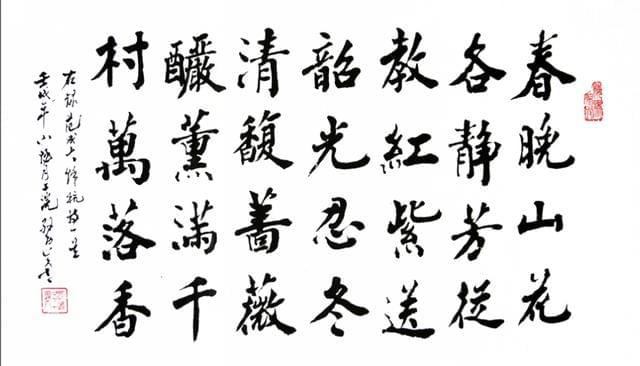 春晚山花
各靜芳從
教紅紫送
韶光忍冬
清馥薔薇
釅薰滿千
村萬落香
右録范成大
壬戌年